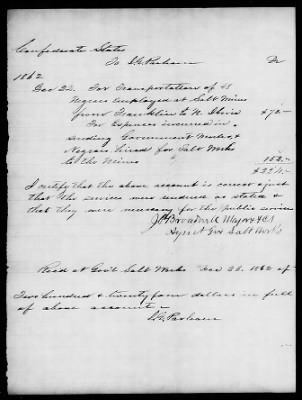 Confederate States
To J. G. Parham Dr
1862
Dec 22. For Transportation of 48
Negroes employed at Salt Mines
from Franklin to N. Iberia $72.—
For Expenses incurred in
sending Government Mules, &
Negroes hired for Salt Works
to the Mines 152.—
$224.—
I certify that the above account is correct & just
that the services were rendered as stated &
that they were necessary for the public service
Broadwell Major & CS
Agent Gov Salt Works
Recd at Govt Salt Works Dec 22. 1862 of
Two hundred & twenty four dollars in full
of above account —